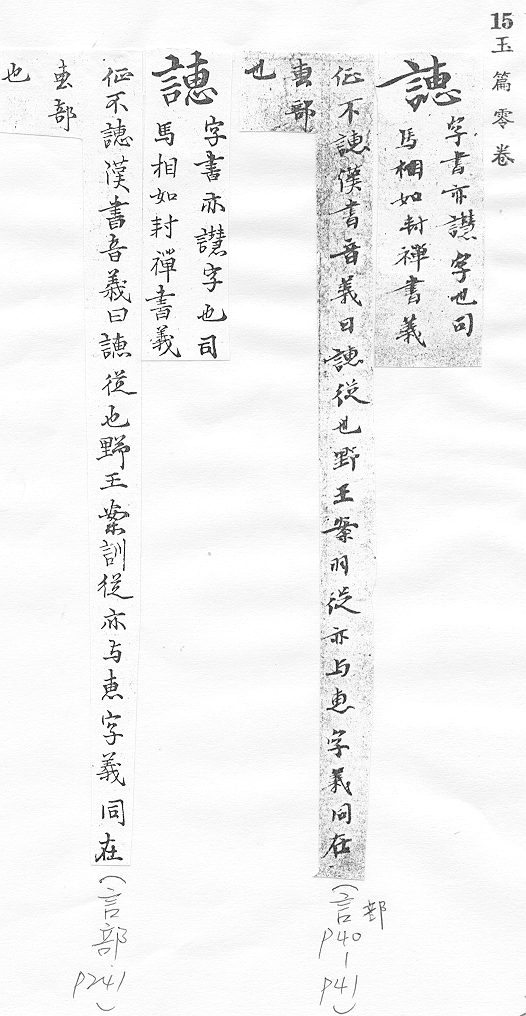 15 玉篇零卷
譓
字書亦譿字也司
馬相如封禪書義
征不譓漢書音義曰譓從也野王案訓從亦与恵字義同在
恵部
也
(言部 P40-P41)
譓
字書亦譿字也司
馬相如封禪書義
征不譓漢書音義曰譓從也野王案訓從亦与恵字義同在
恵部
也
(言部 P241)